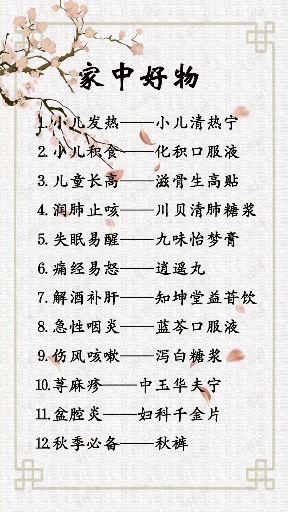 家中好物
1.小儿发热——小儿清热宁
2.小儿积食——化积口服液
3.儿童长高——滋骨生高贴
4.润肺止咳——川贝清肺糖浆
5.失眠易醒——九味怡梦膏
6.痛经易怒——逍遥丸
7.解酒补肝——知坤堂益苷饮
8.急性咽炎——蓝芩口服液
9.伤风咳嗽——泻白糖浆
10.荨麻疹——中玉华夫宁
11.盆腔炎——妇科千金片
12.秋季必备——秋裤